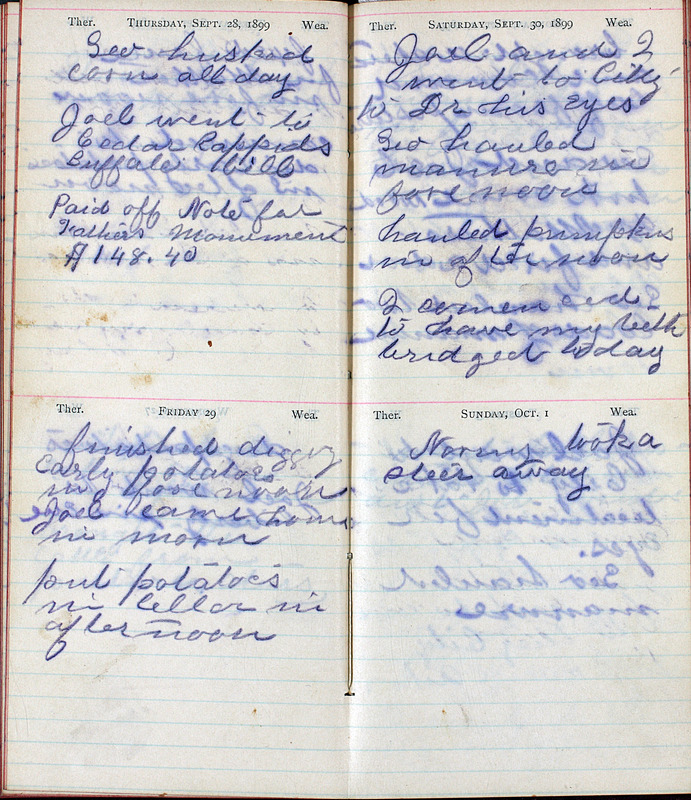 Ther. THURSDAY, SEPT. 28, 1899 Wea.
Geo husked
corn all day
Joel went to
Cedar Rappids
Buffalo Bill
Paid off Note for
Fathers Monument
$148.40
Ther. FRIDAY 29 Wea.
finished digging
Early potatoes
in fore noon
Joel came home
in morn
put potatoes
in cellar in
after noon
Ther. SATURDAY, SEPT. 30, 1899 Wea.
Joel and I
went to City
to Dr his Eyes
Geo hauled
manure in
fore noon
hauled pumpkins
in after noon
I comenced
to have my teeth
bridged today
Ther. SUNDAY, OCT. 1 Wea.
Norris took a
steer away